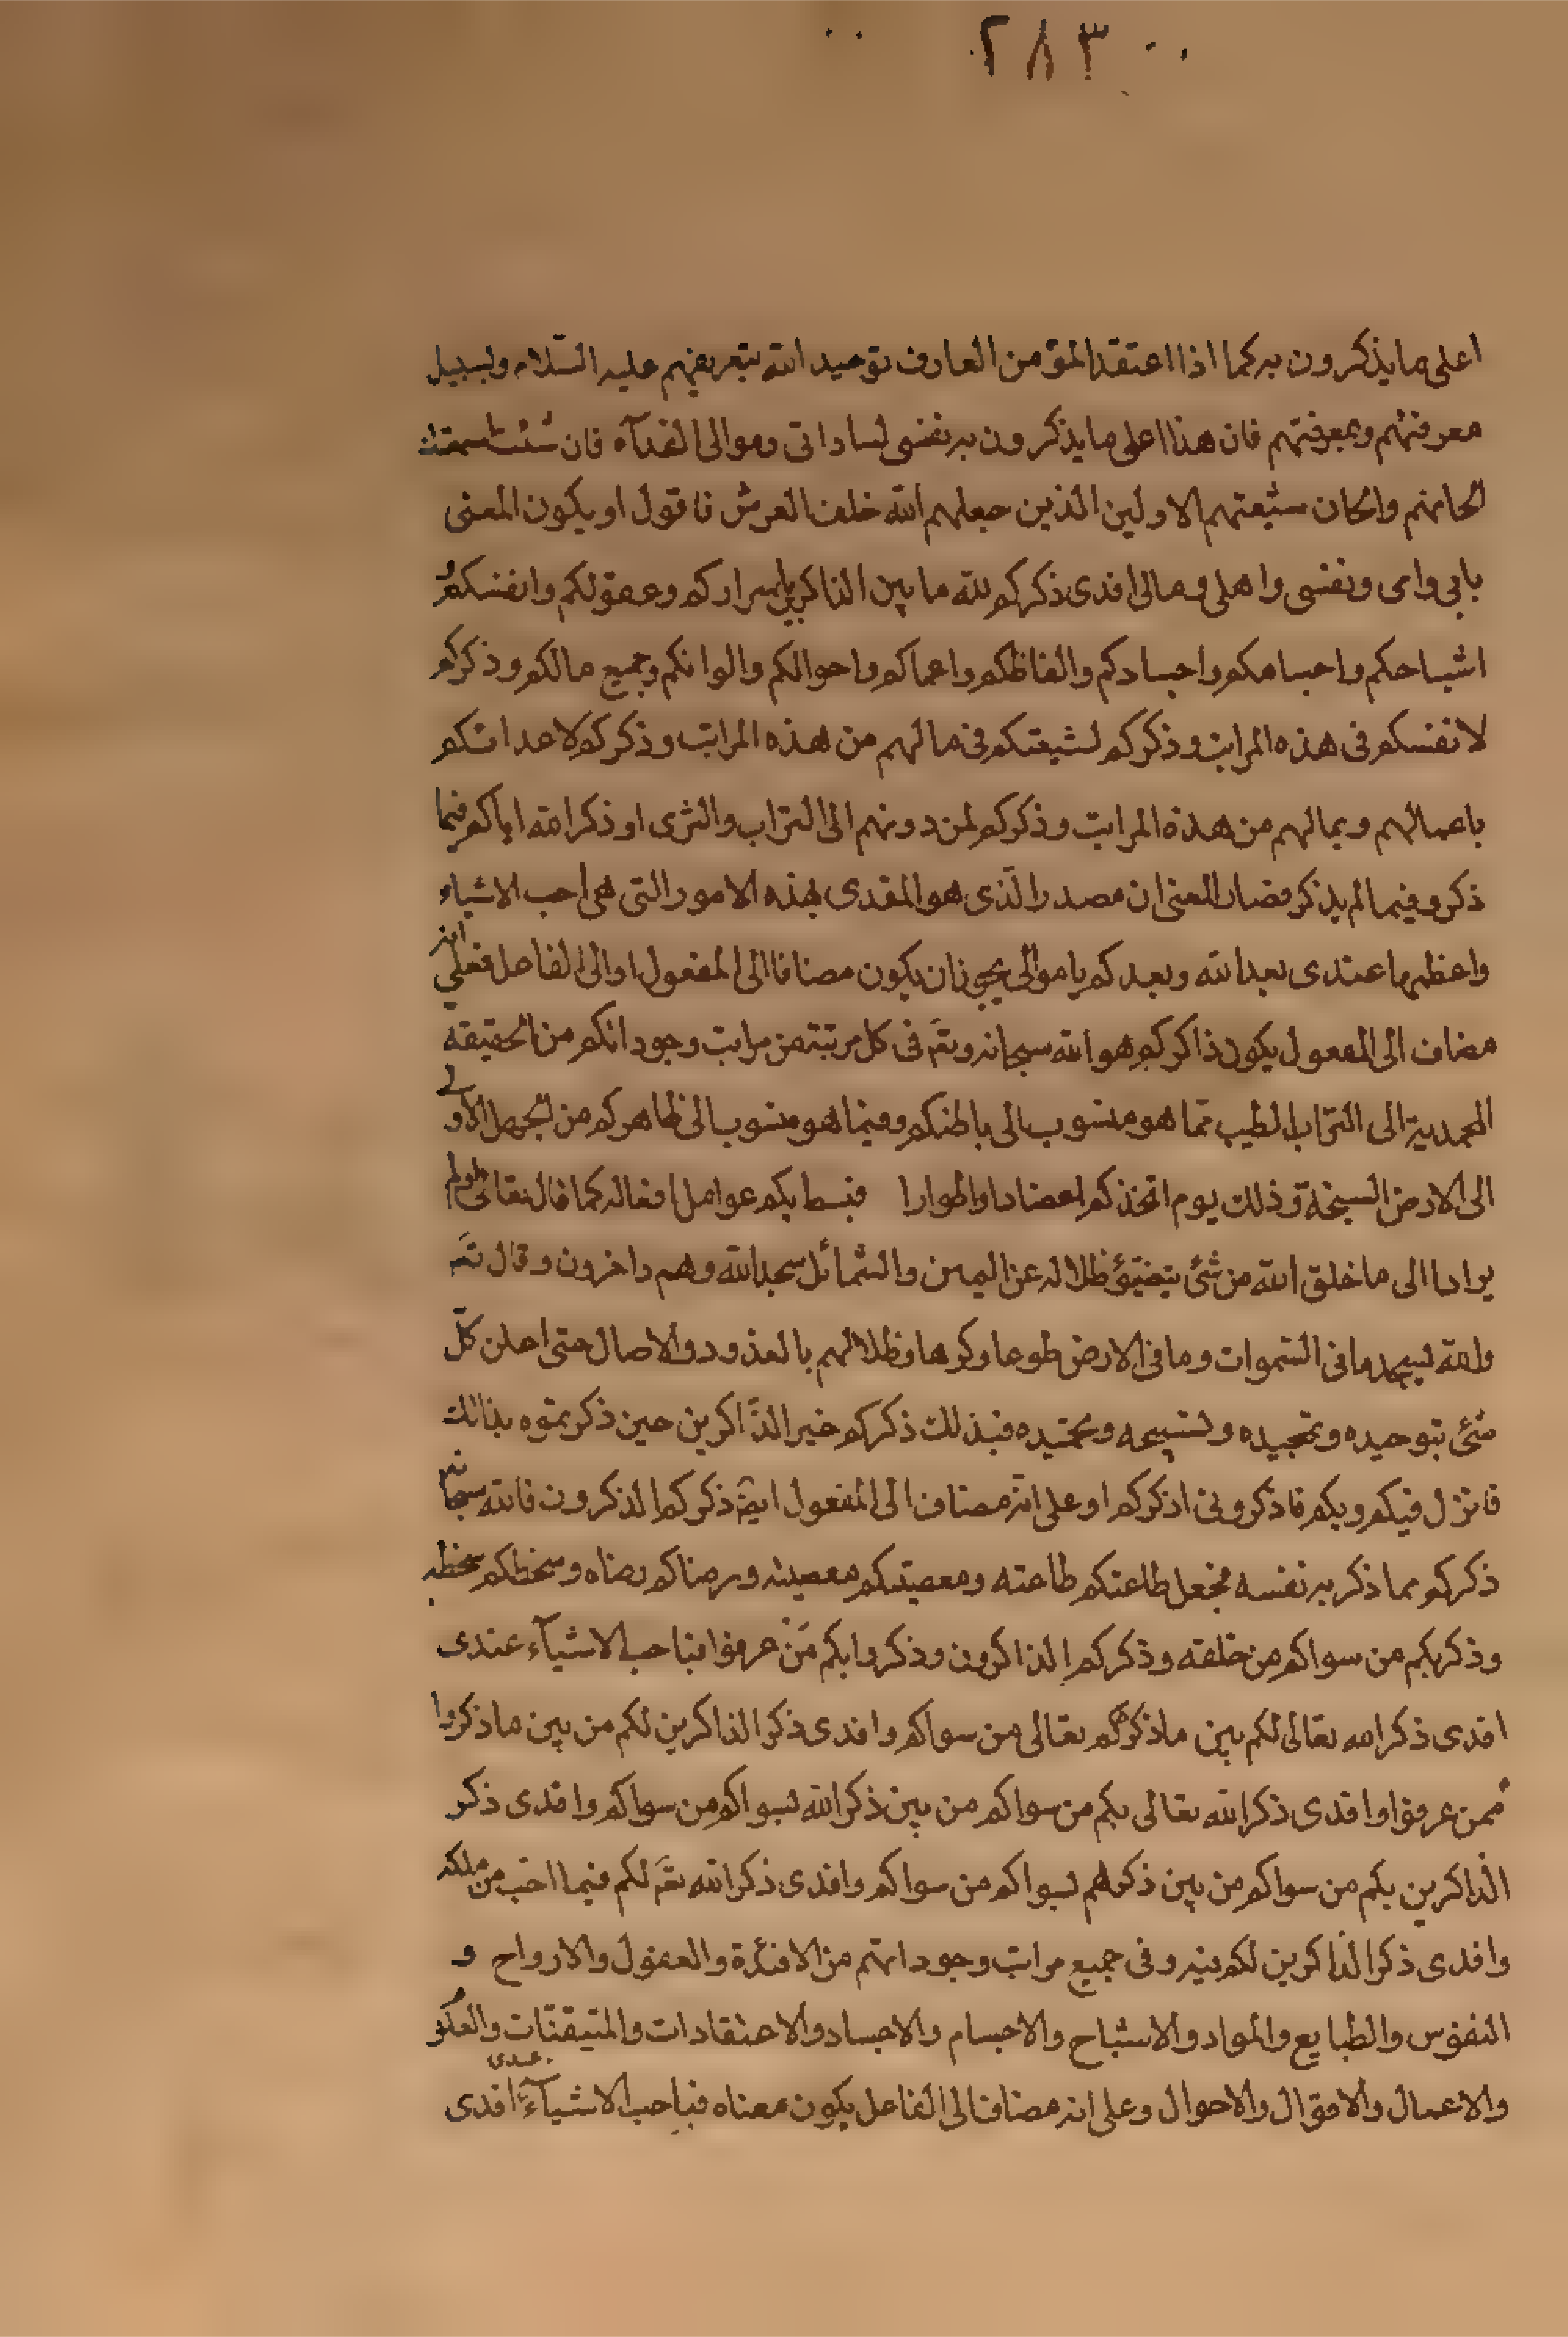 ٢٨٣
اعلى ما يذكرون به كما اذا اعتقد المؤمن العارف توحيد الله بتعريفهم عليه السّلام ولسبيل
معرفتهم وبمعرفتهم فان هذا اعلى ما يذكرون به نفسى لساداتى وموالى الفدآء فان شئت سمعت
الحانهم وانكان شيعتهم الاولين الذين جعلهم الله خلف العرش فاقول او يكون المعنى
بابى وامى ونفسى واهلى ومالى افدى ذكركم لله ما بين الذاكرين باسراركم وعقولكم وانفسكم و
اشباحكم واجسامكم واجسادكم والفاظكم واعمالكم واحوالكم والوانكم وجميع مالكم وذكركم
لانفسكم فى هذه المراتب وذكركم لشيعتكم فى مالهم من هذه المراتب وذكركم لاعدائكم
باعمالهم وبمالهم من هذه المراتب وذكركم لمن دونهم الى التراب والثرى او ذكر الله اياكم فيما
ذكر وفيما لم يذكر فصار المعنى ان مصدر الّذى هو المفدى بهذه الامور التى هى احب الاشياء
واعظمها عندى بعد الله وبعدكم يا موالى يجوز ان يكون مضافا الى المفعول او الى الفاعل فعلى انه
مضاف الى المفعول يكون ذاكركم هو الله سبحانه وتعَ فى كل مرتبة من مراتب وجوداتكم من الحقيقه
المحمدية الى التراب الطيب مما هو منسوب الى باطنكم وفيما هو منسوب الى ظاهركم من الجهل الاولى
الى الارض السبخة وذلك يوم اتخذكم اعضادا واطوارا فبسط بكم عوامل افعاله كما قال تعالى اولم
يرادا الى ما خلق الله من شئ يتفيّؤ ظلاله عن اليمين والشمائل سجدا لله وهم داخرون وقال تعَ
ولله يسجد ما فى السّموات وما فى الارض طوعا وكرها وظلالهم بالغدو ووالاصال حتى احلن كلّ
شئ بتوحيده وتمجيده وتسبيحه وتحميده فبذلك ذكركم خير الذّاكرين حين ذكرتموه بذالك
فانزل فيكم وبكم فاذكرونى اذكركم او على انّه مضاف الى المفعول ايضً ذكركم الذكرون فالله سبحانه
ذكركم بما ذكر به نفسه فجعل طاعتكم طاعته ومعصيتكم معصيته ورضاكم رضاه وسخطكم سخطه
وذكر بكم من سواكم من خلقه وذكركم الذاكرون وذكروا بكم مَنْ عرفوا فباحب الاشيآء عندى
افدى ذكر الله تعالى لكم بين ما ذكركم تعالى من سواكم وافدى ذكر الذاكرين لكم من بين ما ذكروا
ممن عرفوا وافدى ذكر الله تعالى بكم من سواكم من بين ذكر الله لسواكم من سواكم وافدى ذكر
الّذاكرين بكم من سواكم من بين ذكرهم لسواكم من سواكم وافدى ذكر الله تعَ لكم فيما احب من ملكه
وافدى ذكر الذّاكرين لكم فيه وفى جميع مراتب وجوداتهم من الافئدة والعقول والارواح و
النفوس والطبايع والمواد والاشباح والاجسام والاجساد والاعتقادات والمتيقنّات والعكو
والاعمال والاقوال والاحوال وعلى انه مضاف الى الفاعل يكون معناه فباحب الاشيآء عندى افدى